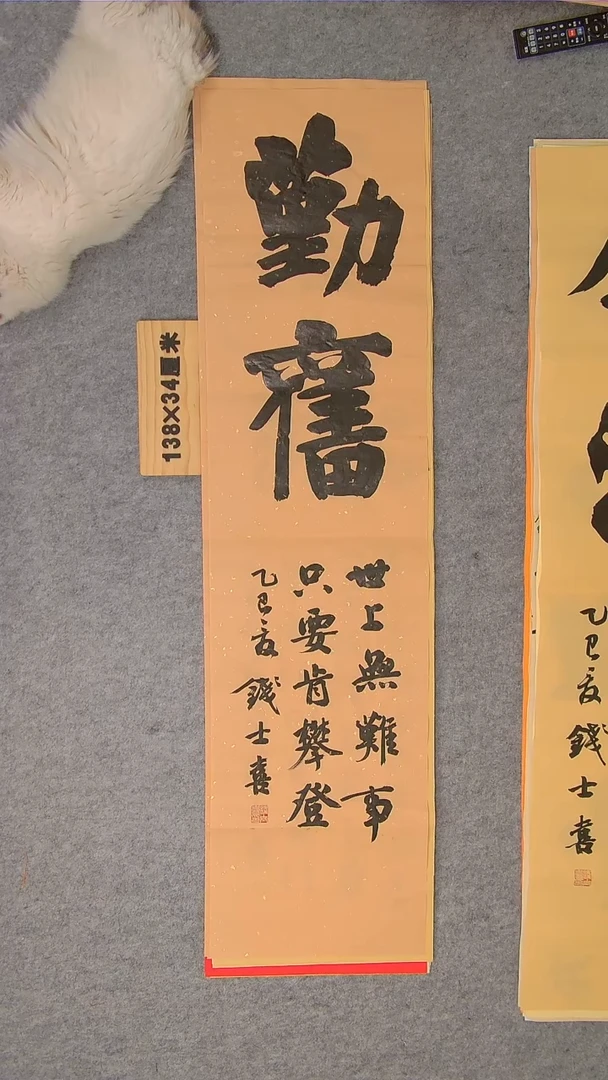 勤奮
世上無難事
只要肯攀登
乙巳夏 錢士喜
138X34厘米
乙巳夏 錢士喜